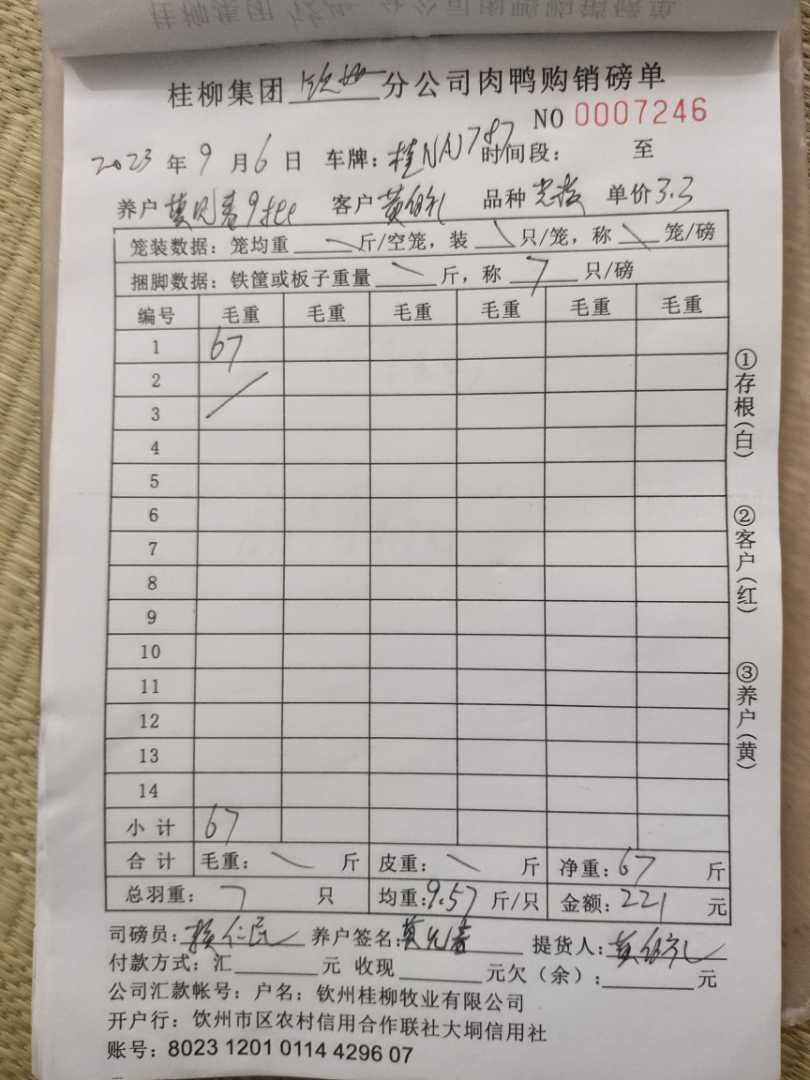 桂柳集团 钦州 分公司肉鸭购销磅单
NO 0007246
2023 年 9 月 6 日 车牌: 桂NAJ787 时间段: 至
养户 莫 9 客户 黄 品种 单价 3.3
笼装数据: 笼均重 \ 斤/空笼, 装 \ 只/笼, 称 \ 笼/磅
捆脚数据: 铁筐或板子重量 \ 斤, 称 7 只/磅
编号 毛重 毛重 毛重 毛重 毛重 毛重
1 67
2
3
4
5
6
7
8
9
10
11
12
13
14
小 计 67
合 计 毛重: \ 斤 皮重: \ 斤 净重: 67 斤
总羽重: 7 只 均重: 9.57 斤/只 金额: 221 元
司磅员: 仁民 养户签名: 莫 提货人: 黄
付款方式: 汇 元 收现 元欠 (余): 元
公司汇款帐号: 户名: 钦州桂柳牧业有限公司
开户行: 钦州市区农村信用合作联社大垌信用社
账号: 8023 1201 0114 4296 07
①存根(白)
②客户(红)
③养户(黄)